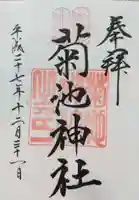 奉拝
菊池神社
平成二十七年十二月三十一日